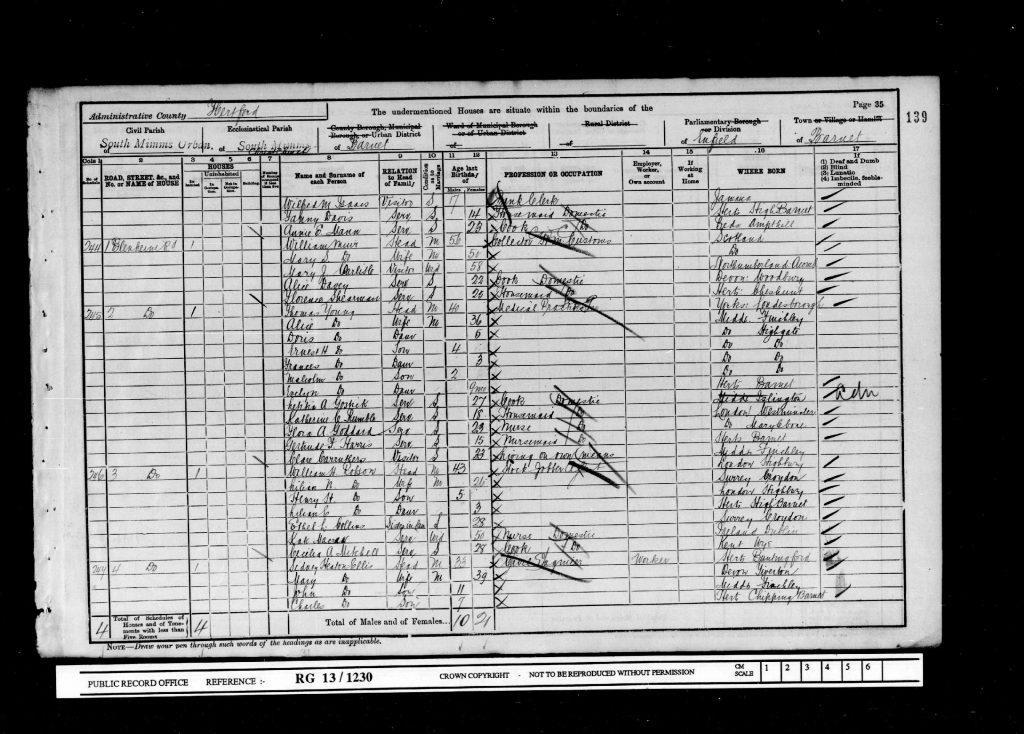 Administrative County Hertford
The undermentioned Houses are situate within the boundaries of the
Page 35
139
Civil Parish
Ecclesiastical Parish
County Borough, Municipal Borough, or Urban District
Ward of Municipal Borough or of Urban District
Rural District
Parliamentary Borough or Division
Town or Village or Hamlet
of South Mimms Urban.
of South Mimms
of Barnet
of
of
of Enfield
of Barnet
Cols 1 2 3 4 5 6 7 8 9 10 11 12 13 14 15 16 17
No. of Schedule
ROAD, STREET, &c., and No. or NAME of HOUSE
HOUSES
Inhabited
Uninhabited
In Occupation
Not in Occupation
Building
Name and Surname of each Person
RELATION to Head of Family
Condition as to Marriage
Age last Birthday of
Males Females
PROFESSION OR OCCUPATION
Employer, Worker, or Own account
If Working at Home
WHERE BORN
If
(1) Deaf and Dumb
(2) Blind
(3) Lunatic
(4) Imbecile, feeble-minded
Wilfred M Isaacs Visitor S 17 Bank Clerk Jamaica
Fanny Davis Serv S 14 Housemaid Domestic Herts High Barnet
Annie E Mann Serv S 23 Cook Do Beds Ampthill
244 1 Blenheim Rd 1 William Muir Head M 56 Collector H.M. Customs Scotland
Mary S Do Wife M 50 Do
Mary J Carlisle Visitor Wd 58 Northumberland Acomb
Alice Davey Serv S 22 Cook Domestic Devon Woodbury
Florence Shearman Serv S 20 Housemaid Do Herts Cheshunt
245 2 Do 1 Thomas Young Head M 40 Medical Practitioner Yorks Londesborough
Alice Do Wife M 36 Middx Finchley
Doris Do Daur 5 Do Highgate
Ernest H Do Son 4 Do Do
Frances Do Daur 3 Do Do
Malcolm Do Son 2 Do Do
Evelyn Do Daur 9mo Herts Barnet
A Gostick Serv S 27 Cook Domestic Middx Islington
Katherine E Rumble Serv S 18 Housemaid Do London Westminster
Flora A Goddard Serv S 23 Nurse Do Do Marylebone
Gertrude F Harris Serv S 15 Nursemaid Do Herts Barnet
Clare Carruthers Visitor S 23 Living on own means Middx Finchley
246 3 Do 1 William H Head M 43 Stock Jobber London Highbury
Lilian N Do Wife M 26 Surrey Croydon
Henry H Do Son 5 London Highbury
Lilian E Do Daur 3 Herts High Barnet
Ethel L Collins Sister in law S 28 Surrey Croydon
Kate Serv Wd 50 Nurse Domestic Ireland Dublin
Cecilia A Mitchell Serv S 28 Cook Do Kent Wye
247 4 Do 1 Sidney Heaton Ellis Head M 33 Civil Engineer Worker Herts Buntingford
Mary Do Wife M 39 Devon Tiverton
John Do Son 11 Middx Finchley
Charles Do Son 7 Hert Chipping Barnet
4 Total of Schedules of Houses and of Tenements with less than Five Rooms 4
Total of Males and of Females... 10 21
NOTE—Draw your pen through such words of the headings as are inapplicable.
PUBLIC RECORD OFFICE REFERENCE :- RG 13/1230 CROWN COPYRIGHT - NOT TO BE REPRODUCED WITHOUT PERMISSION CM SCALE 1 2 3 4 5 6